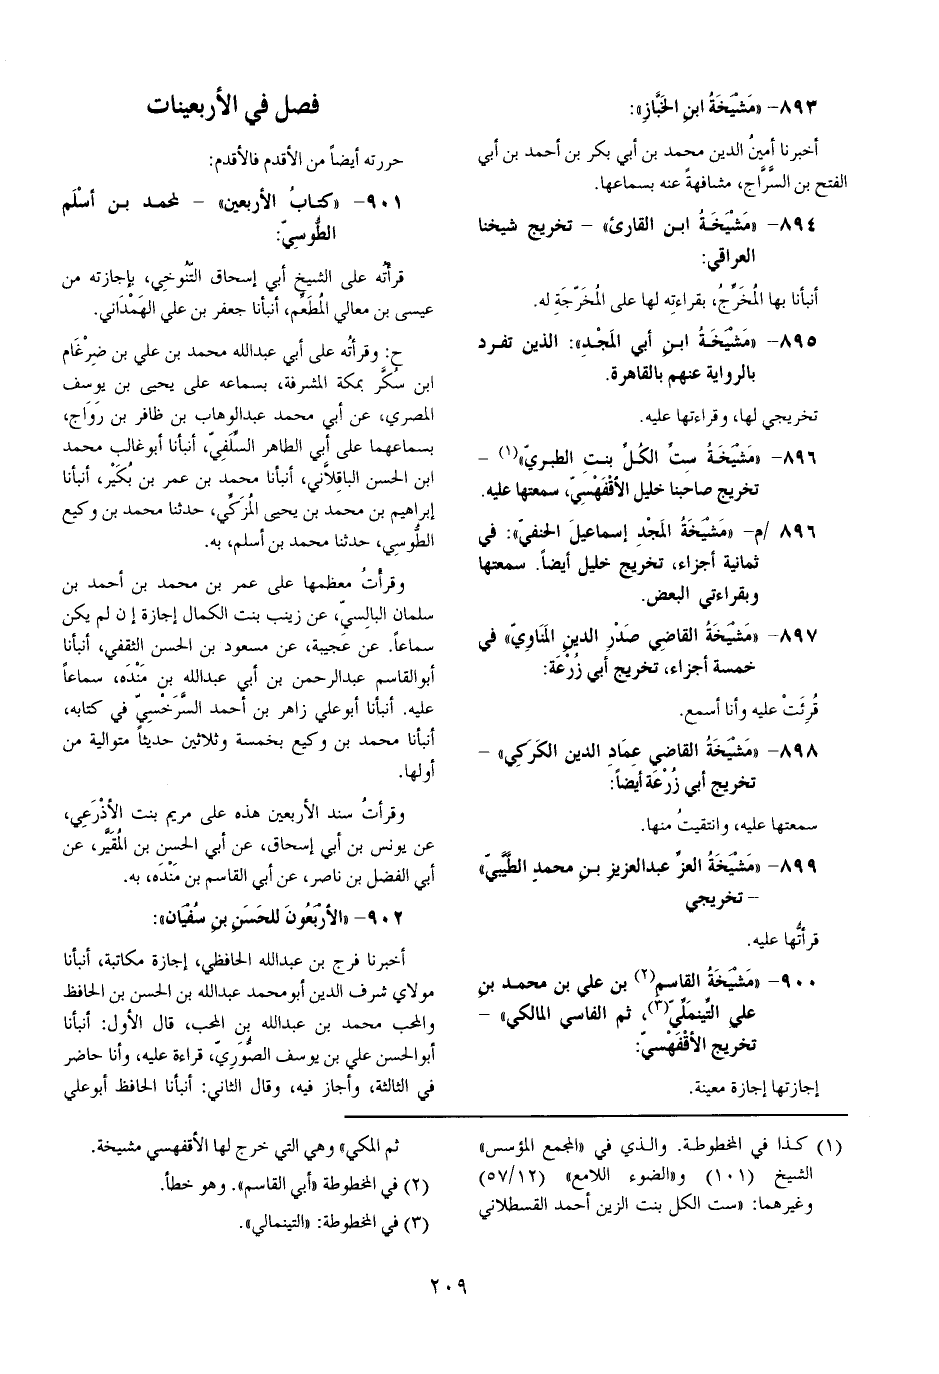 ٨٩٣- «مَشْيَخَةُ ابنِ الخَبَّازِ»:
أخبرنا أمينُ الدين محمد بن أبي بكر بن أحمد بن أبي
الفتح بن السَّرَّاج، مشافهةً عنه بسماعها.
٨٩٤- «مَشْيَخَةُ ابن القارئ» - تخريج شيخنا
العراقي:
أنبأنا بها المُخَرِّجُ، بقراءته لها على المُخَرَّجَةِ له.
٨٩٥- «مَشْيَخَةُ ابنِ أبي المَجْدِ»: الذين تفرد
بالرواية عنهم بالقاهرة.
تخريجي لها، وقراءتها عليه.
٨٩٦- «مَشْيَخَةُ ستِّ الكُلِّ بنتِ الطبريِّ»(١) -
تخريج صاحبنا خليل الأَقْفَهْسِيّ، سمعتها عليه.
٨٩٦ /م- «مَشْيَخَةُ المَجْدِ إسماعيلَ الحنفيّ»: في
ثمانية أجزاء، تخريج خليل أيضاً. سمعتها
وبقراءتي البعض.
٨٩٧- «مَشْيَخَةُ القاضي صَدْرِ الدينِ المَنَاوِيّ» في
خمسة أجزاء، تخريج أبي زُرْعَة:
قُرِئَتْ عليه وأنا أسمع.
٨٩٨- «مَشْيَخَةُ القاضي عِمَادِ الدين الكَرَكِي» -
تخريج أبي زُرْعَة أيضاً:
سمعتها عليه، وانتقيتُ منها.
٨٩٩- «مَشْيَخَةُ العزِّ عبدالعزيزِ بنِ محمدٍ الطَّيِّبيّ»
- تخريجي
قرأتُها عليه.
٩٠٠- «مَشْيَخَةُ القاسمِ(٢) بن علي بن محمد بنِ
علي التِّينمَلِّيّ(٣)، ثم الفاسي المالكي» -
تخريج الأَقْفَهْسِيّ:
إجازتها إجازة معينة.
فصل في الأربعينات
حررته أيضاً من الأقدم فالأقدم:
٩٠١- «كتابُ الأربعين» - لمحمد بن أسْلَم
الطُّوسِيّ:
قرأتُه على الشيخ أبي إسحاق التَّنُوخِي، بإجازته من
عيسى بن معالي المُطَعِّم، أنبأنا جعفر بن علي الهَمْدَاني.
ح: وقرأتُه على أبي عبدالله محمد بن علي بن ضِرْغَام
ابن سُكَّر بمكة المشرفة، بسماعه على يحيى بن يوسف
المصري، عن أبي محمد عبدالوهاب بن ظافر بن رَوَاج،
بسماعهما على أبي الطاهر السِّلَفِيّ، أنبأنا أبوغالب محمد
ابن الحسن الباقِلَّاني، أنبأنا محمد بن عمر بن بُكَيْر، أنبأنا
إبراهيم بن محمد بن يحيى المُزَكِّي، حدثنا محمد بن وكيع
الطُّوسي، حدثنا محمد بن أسلم، به.
وقرأتُ معظمها على عمر بن محمد بن أحمد بن
سلمان البالسيّ، عن زينب بنت الكمال إجازة إن لم يكن
سماعاً. عن عَجيبة، عن مسعود بن الحسن الثقفي، أنبأنا
أبوالقاسم عبدالرحمن بن أبي عبدالله بن مَنْدَه، سماعاً
عليه. أنبأنا أبوعلي زاهر بن أحمد السَّرَخْسِيّ في كتابه،
أنبأنا محمد بن وكيع بخمسة وثلاثين حديثاً متوالية من
أولها.
وقرأتُ سند الأربعين هذه على مريم بنت الأَذْرَعِي،
عن يونس بن أبي إسحاق، عن أبي الحسن بن المُقَيَّر، عن
أبي الفضل بن ناصر، عن أبي القاسم بن مَنْدَه، به.
٩٠٢- «الأَرْبَعُونَ للحَسَنِ بنِ سُفْيَان»:
أخبرنا فرج بن عبدالله الحافظي، إجازة مكاتبة، أنبأنا
مولاي شرف الدين أبومحمد عبدالله بن الحسن بن الحافظ
والمحب محمد بن عبدالله بن المحب، قال الأول: أنبأنا
أبوالحسن علي بن يوسف الصُّورِيّ، قراءة عليه، وأنا حاضر
في الثالثة، وأجاز فيه، وقال الثاني: أنبأنا الحافظ أبوعلي
(١) كذا في المخطوطة. والذي في «المجمع المؤسس»
الشيخ (١٠١) و«الضوء اللامع» (٥٧/١٢)
وغيرهما: «ست الكل بنت الزين أحمد القسطلاني
ثم المكي» وهي التي خرج لها الأقفهسي مشيخة.
(٢) في المخطوطة «أبي القاسم». وهو خطأ.
(٣) في المخطوطة: «التينمالي».
٢٠٩